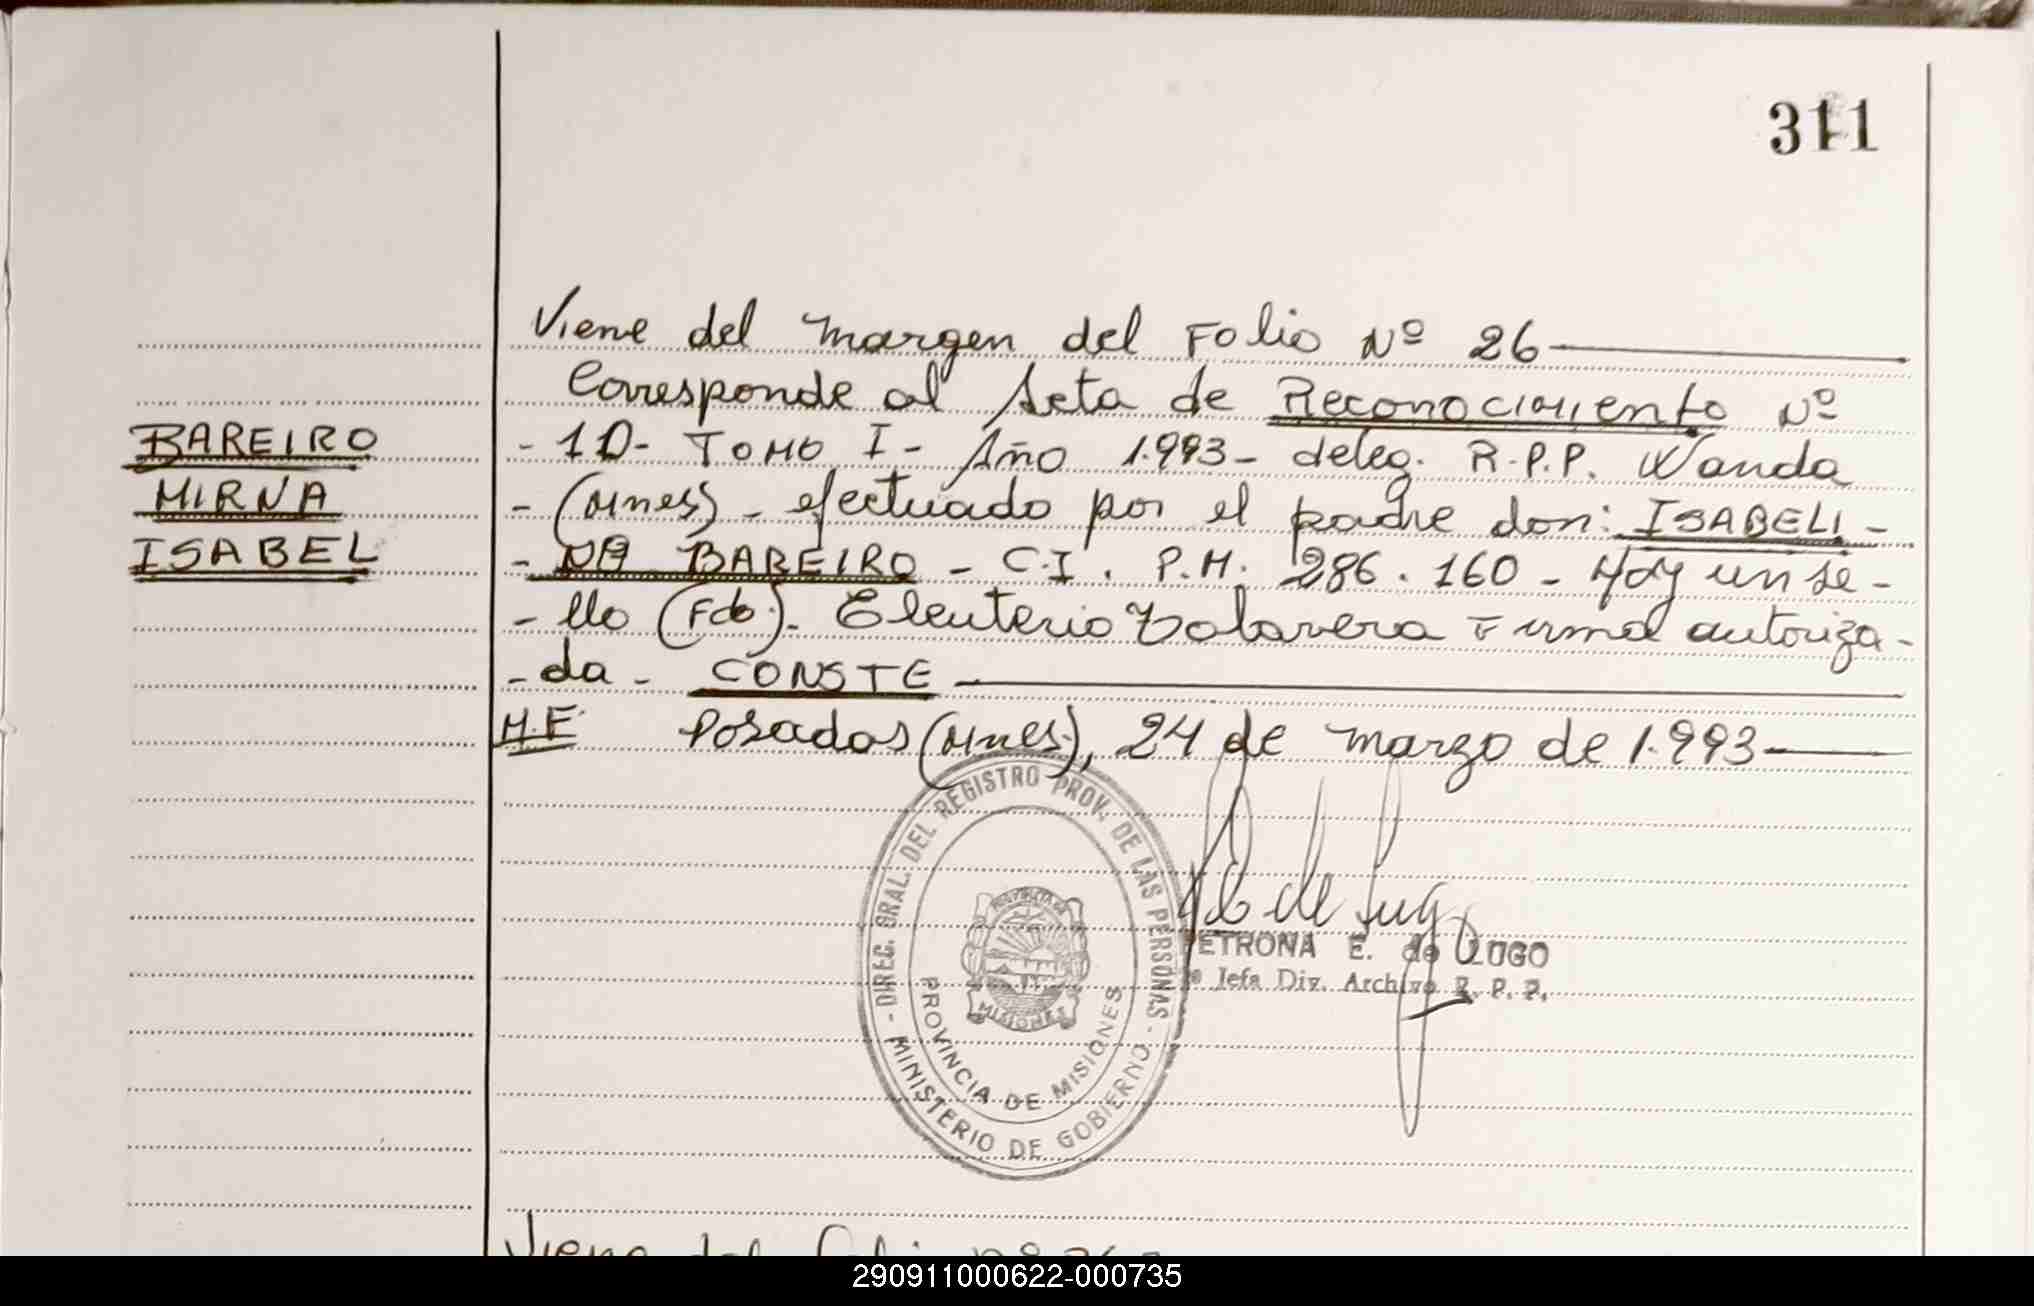 311
Viene del margen del Folio Nº 26
Corresponde al Acta de Reconocimiento Nº
BAREIRO
- 10- TOMO I - Año 1.993- deleg. R.P.P. Wanda
MIRNA
- (Mnes) - efectuado por el padre don: ISABELI-
ISABEL
- NO BAREIRO - C.I. P.M. 286.160 - Hay un se-
- llo (Fdo). Eleuterio Talavera Firma autoriza-
- da - CONSTE
M.E. Posadas (Mnes), 24 de marzo de 1.993
- DIREC. GRAL. DEL REGISTRO PROV. DE LAS PERSONAS -
MINISTERIO DE GOBIERNO
PROVINCIA DE MISIONES
MISIONES
de Lugo
ETRONA E. de LUGO
Jefa Div. Archivo R. P. P.
Viene del Folio nº
290911000622-000735